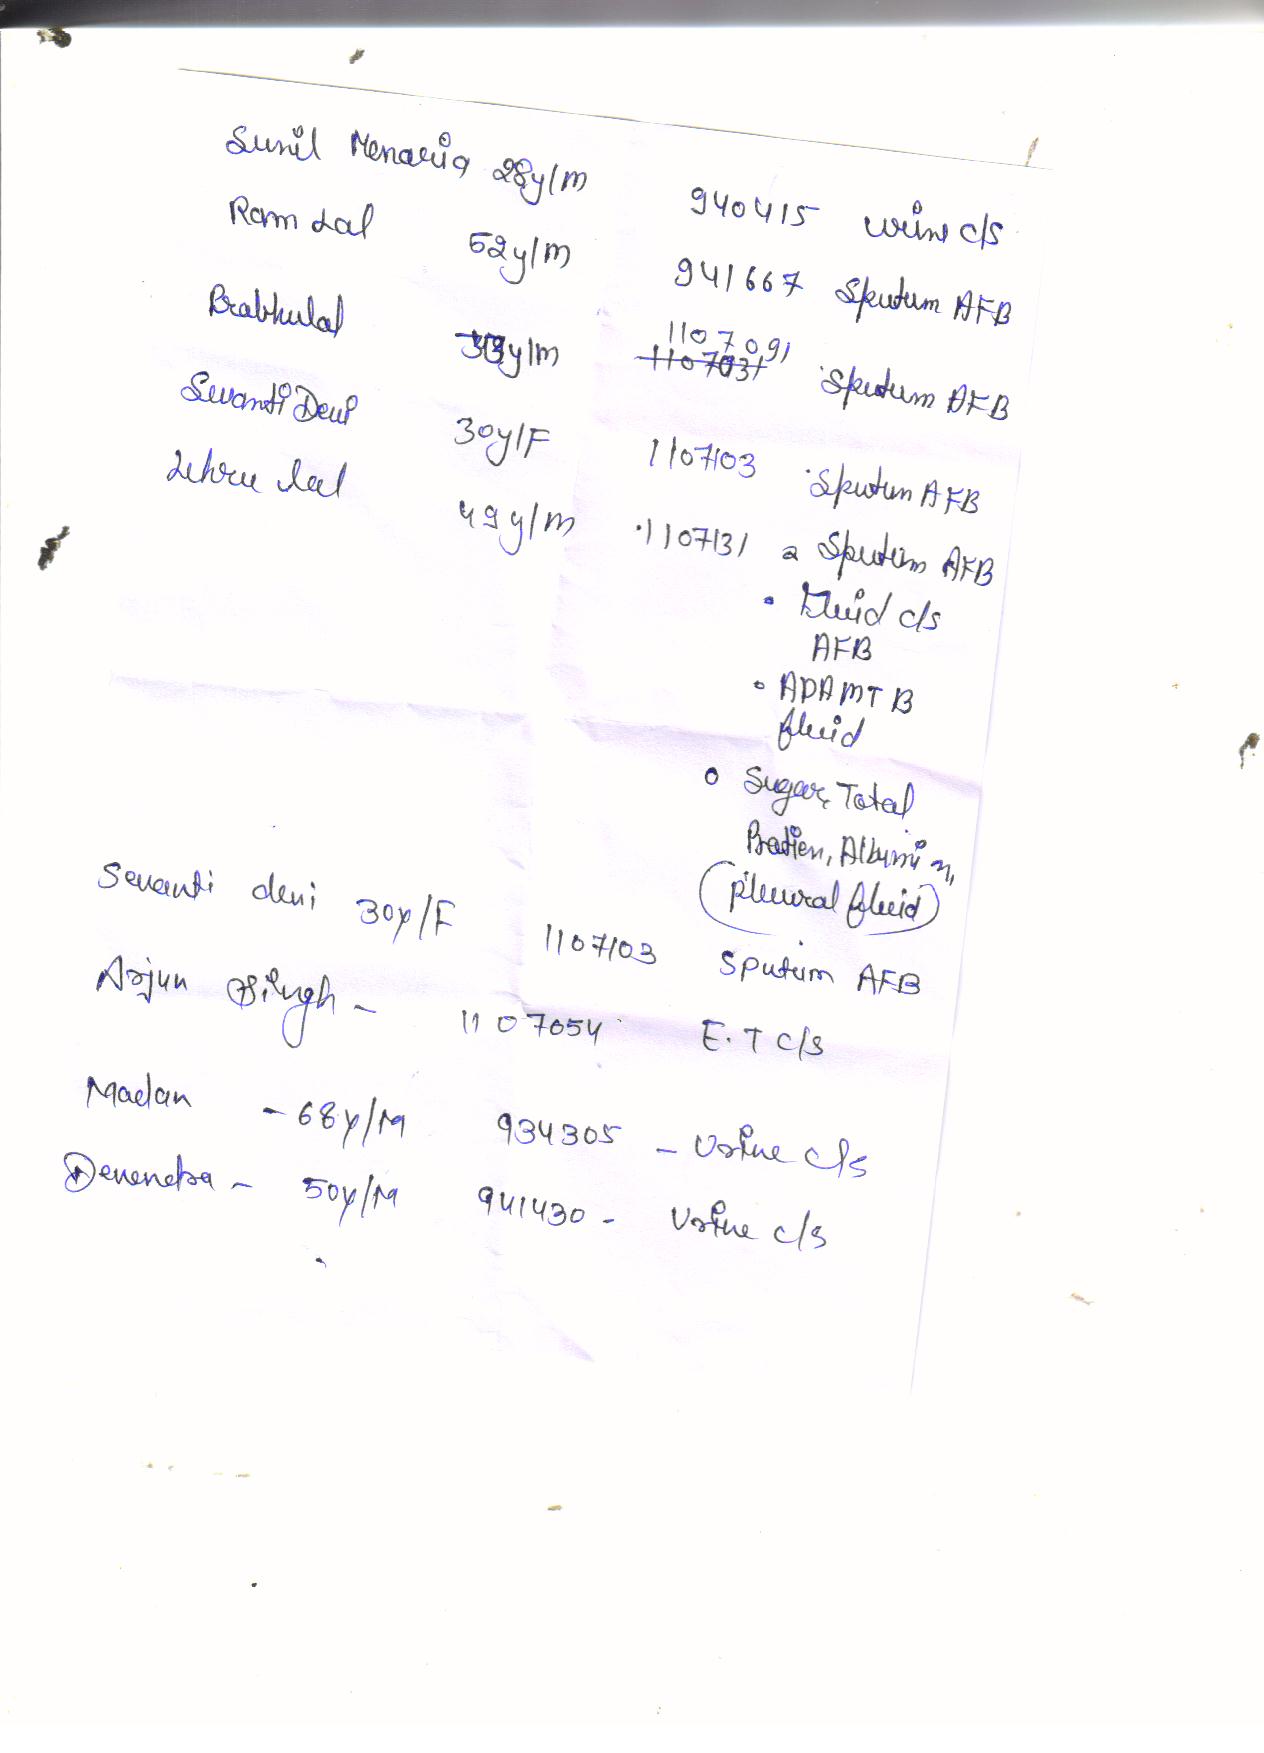 Sunil Menaria 28y/m 940415 urine c/s
Ram Lal 52y/m 941667 Sputum AFB
Prabhulal y/m 1107091 Sputum AFB
1107031
Sevanti Devi 30y/F 1107103 Sputum AFB
Lehru lal 49y/m 1107131 Sputum AFB
• Fluid c/s
AFB
• ADAMTB
fluid
• Sugar, Total
Protien, Albumin,
(Pleural fluid)
Sevanti devi 30y/F 1107103 Sputum AFB
Arjun Singh - 1107054 E.T c/s
Madan - 68y/M 934305 - Urine c/s
Devendra - 50y/M 941430 - Urine c/s